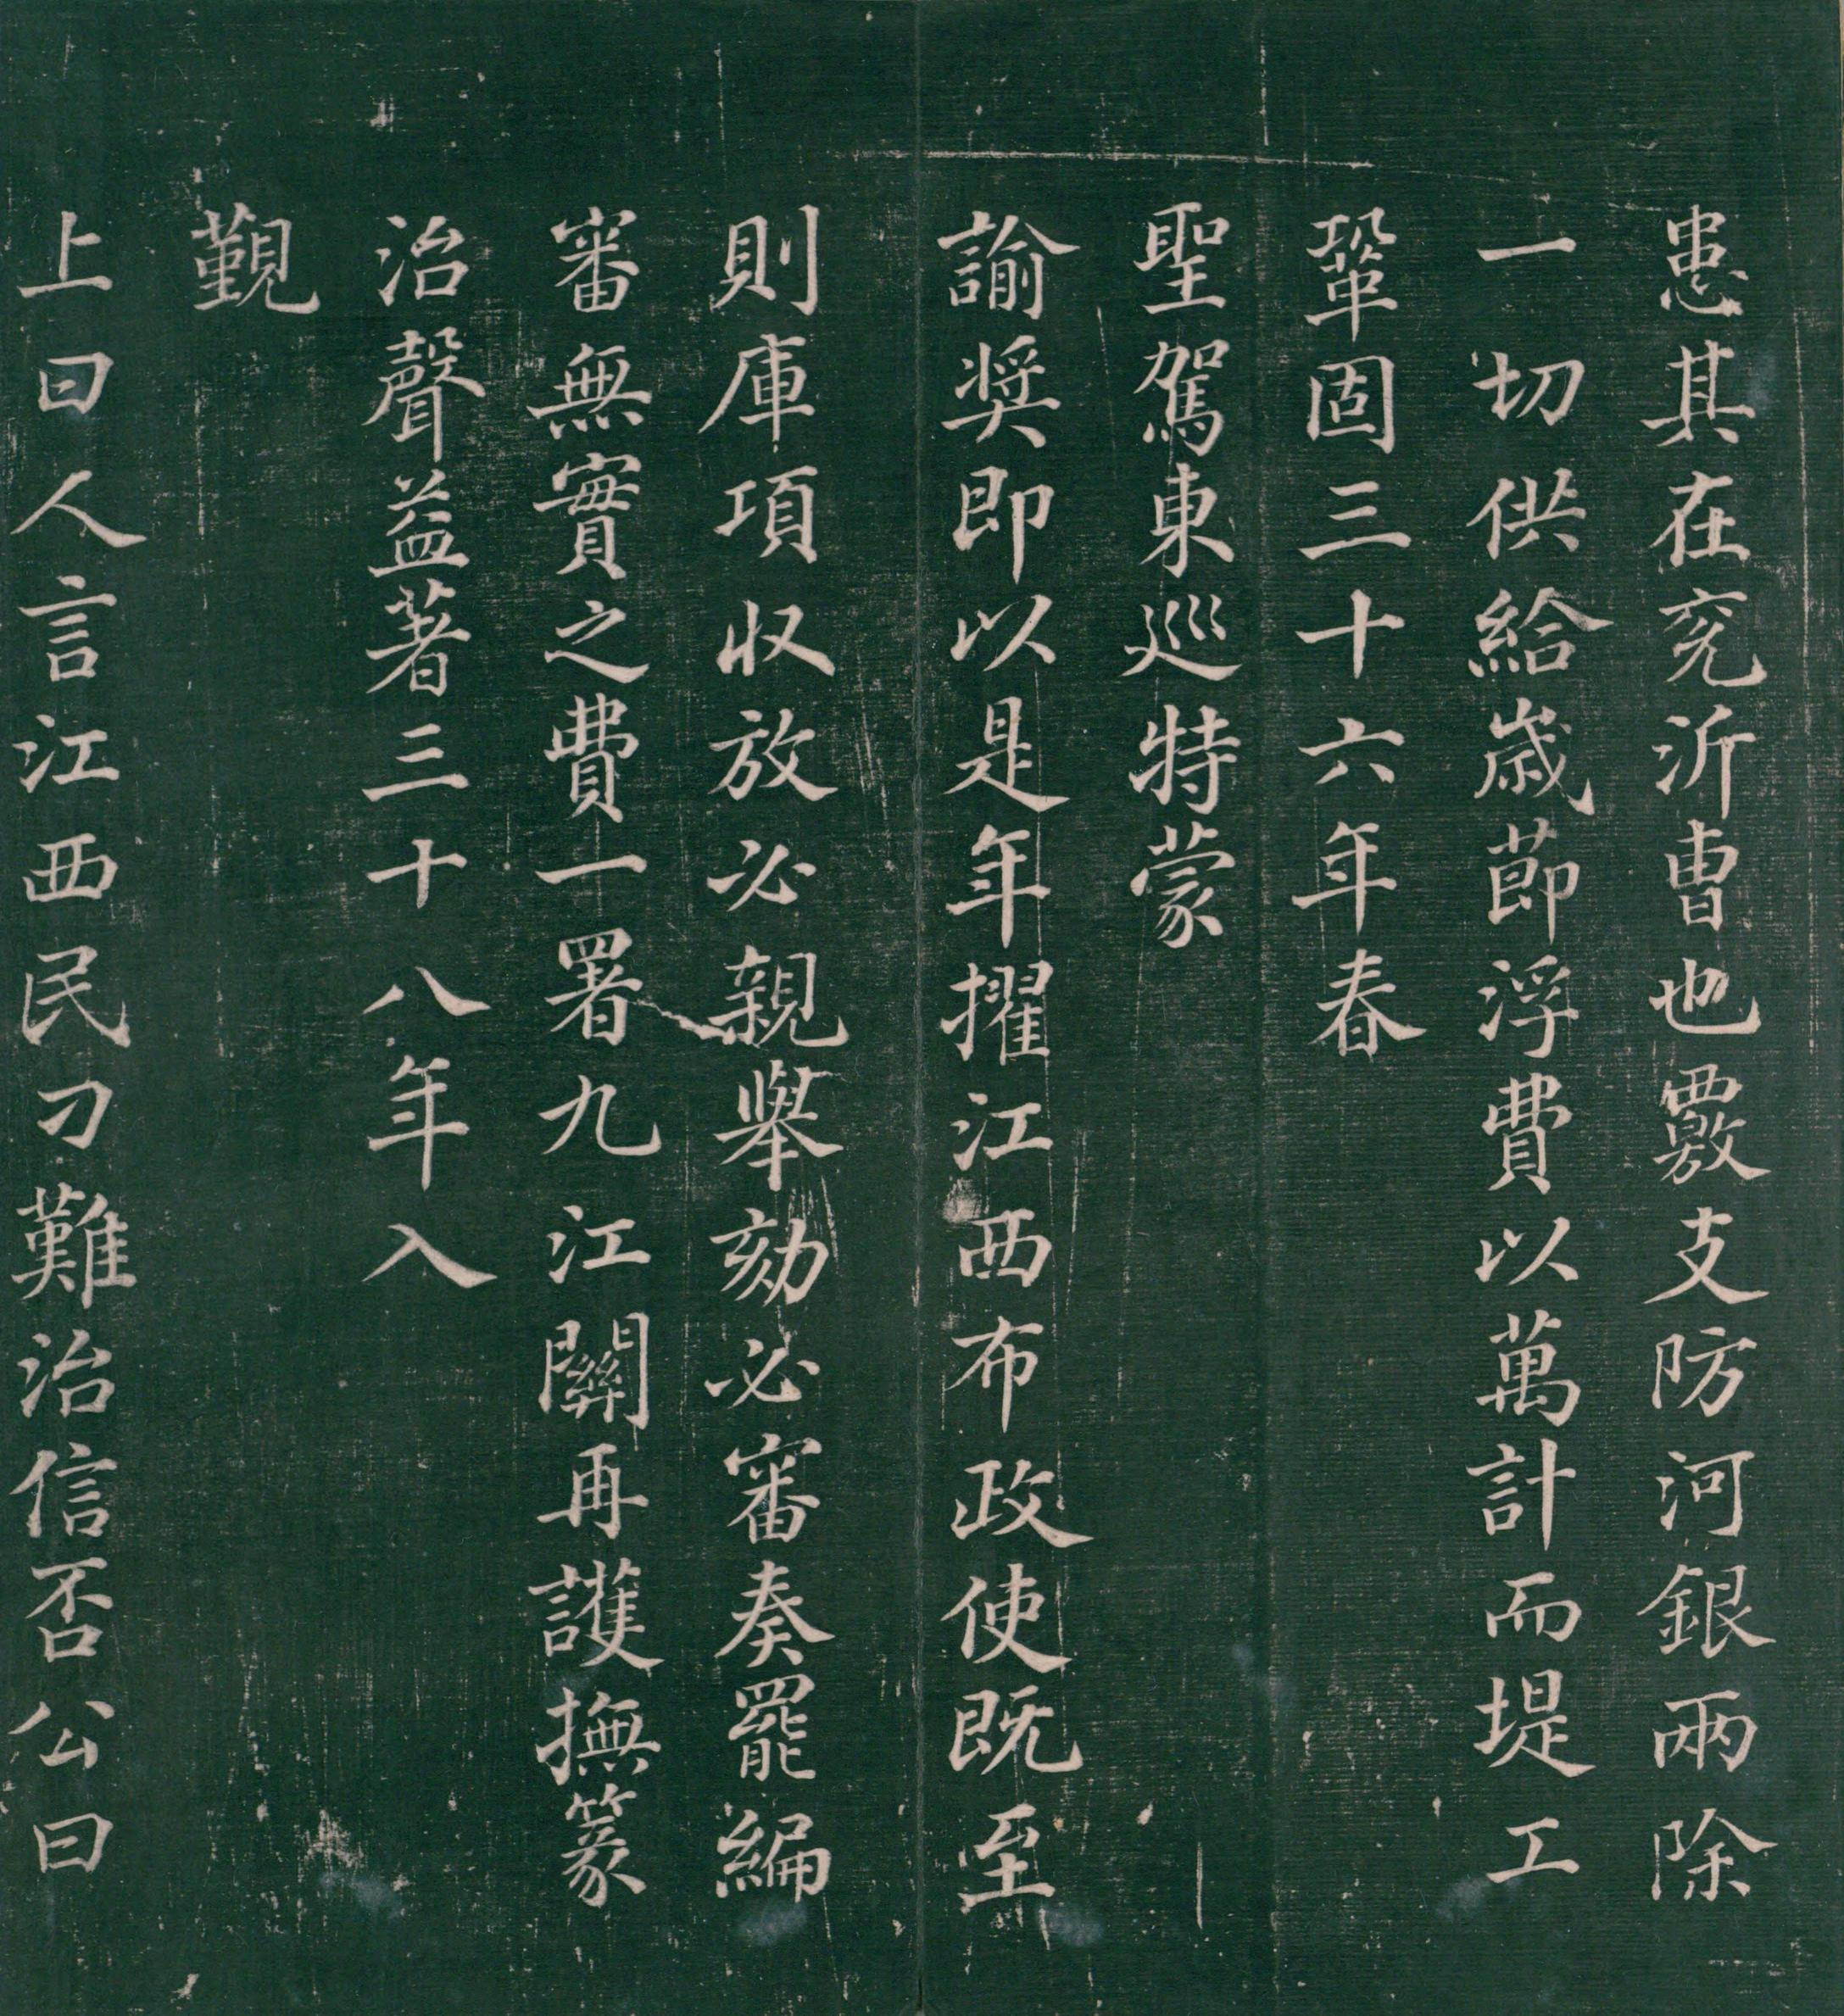 患其在兖沂曹也覈支防河銀兩除
一切供給歲節浮費以萬計而堤工
鞏固三十六年春
聖駕東巡特蒙
諭奬即以是年擢江西布政使既至
則庫項收放必親舉劾必審奏罷編
審無實之費一署九江關再護撫篆
治聲益著三十八年入
覲
上曰人言江西民刁難治信否公曰